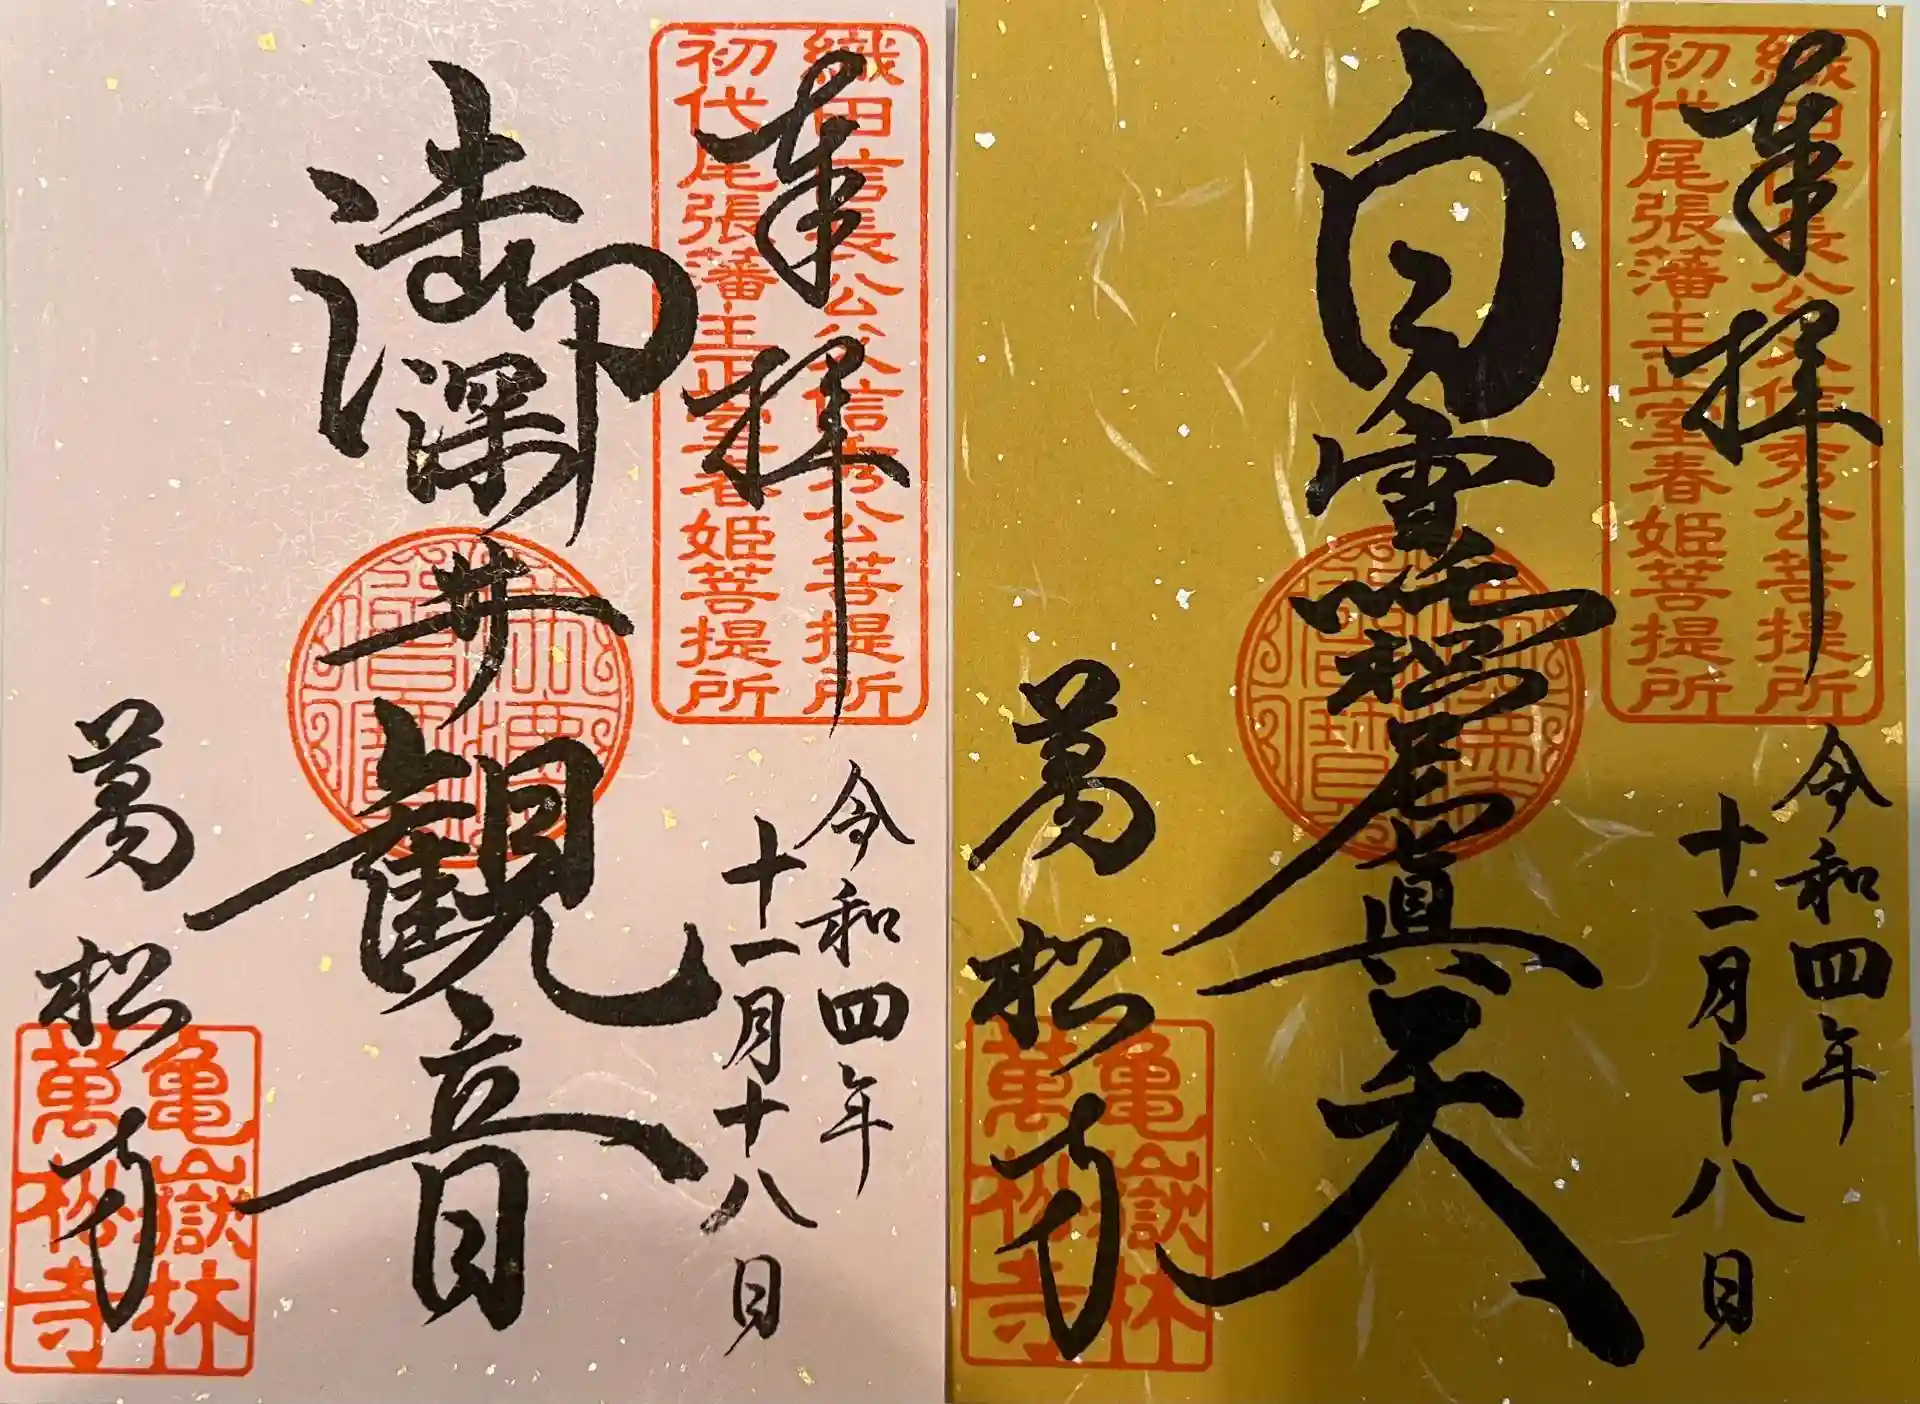 奉拝
織田信長公父信秀公菩提所
初代尾張藩主正室春姫菩提所
令和四年
十一月十八日
御深井観音
萬松寺
亀嶽林
萬松寺
奉拝
織田信長公父信秀公菩提所
初代尾張藩主正室春姫菩提所
令和四年
十一月十八日
白雪吒枳尼眞天
萬松寺
亀嶽林
萬松寺